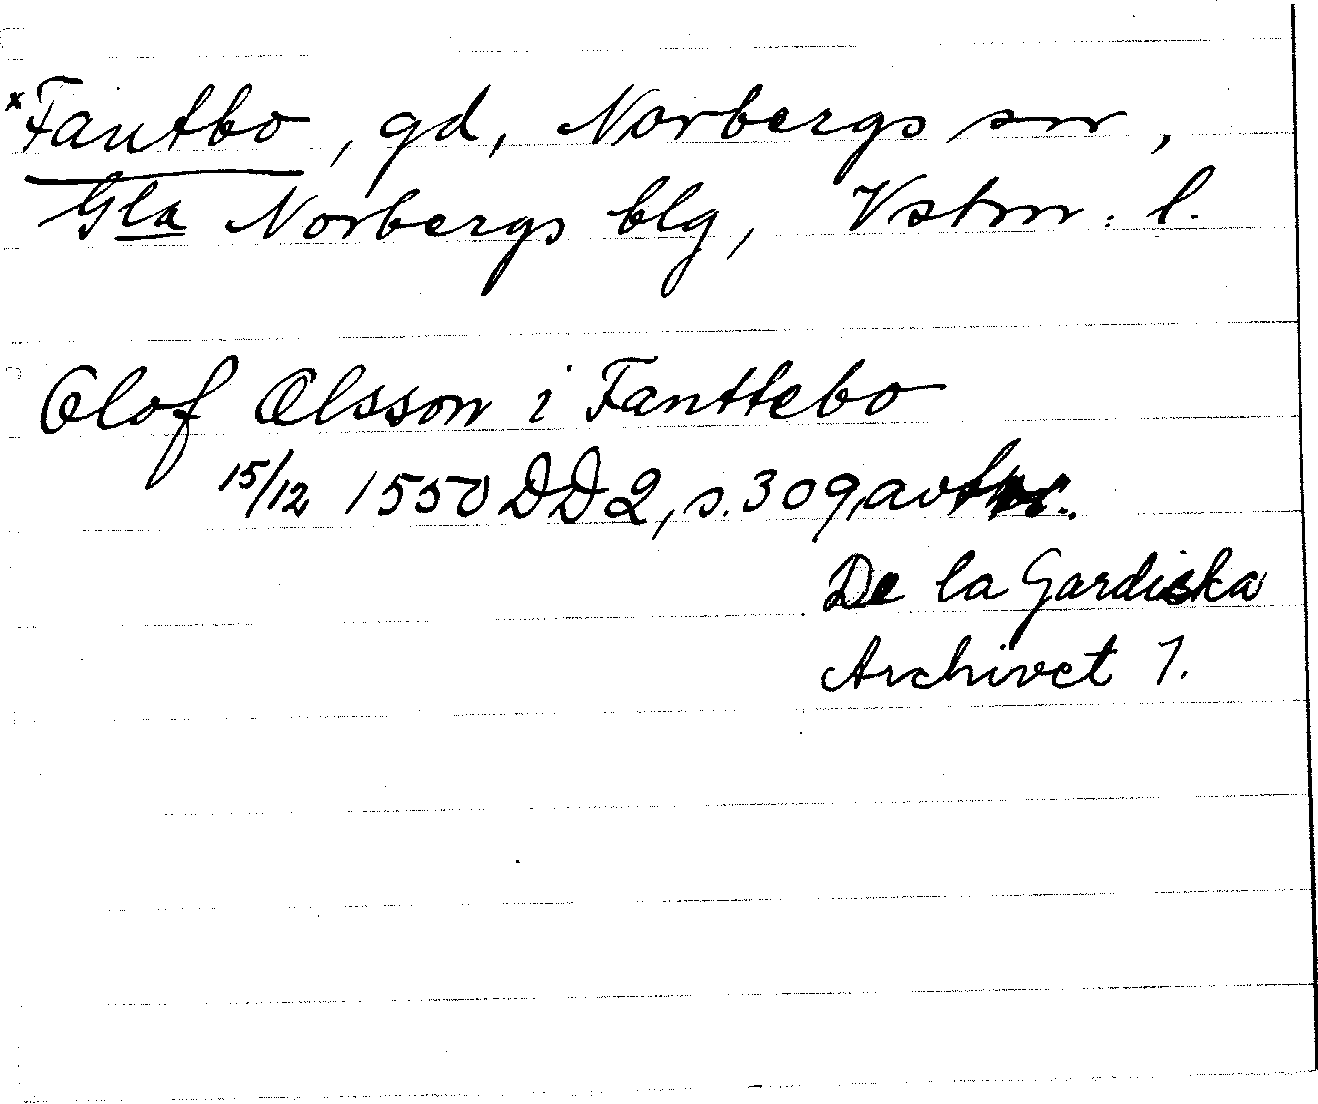 x Fantbo, gd, Norbergs sn,
Gla Norbergs blg, Vstm. l.
Olof Olsson i Fanttebo
15/12 1550 DD2, s. 309, avskr.
De la Gardiska
Archivet 1.